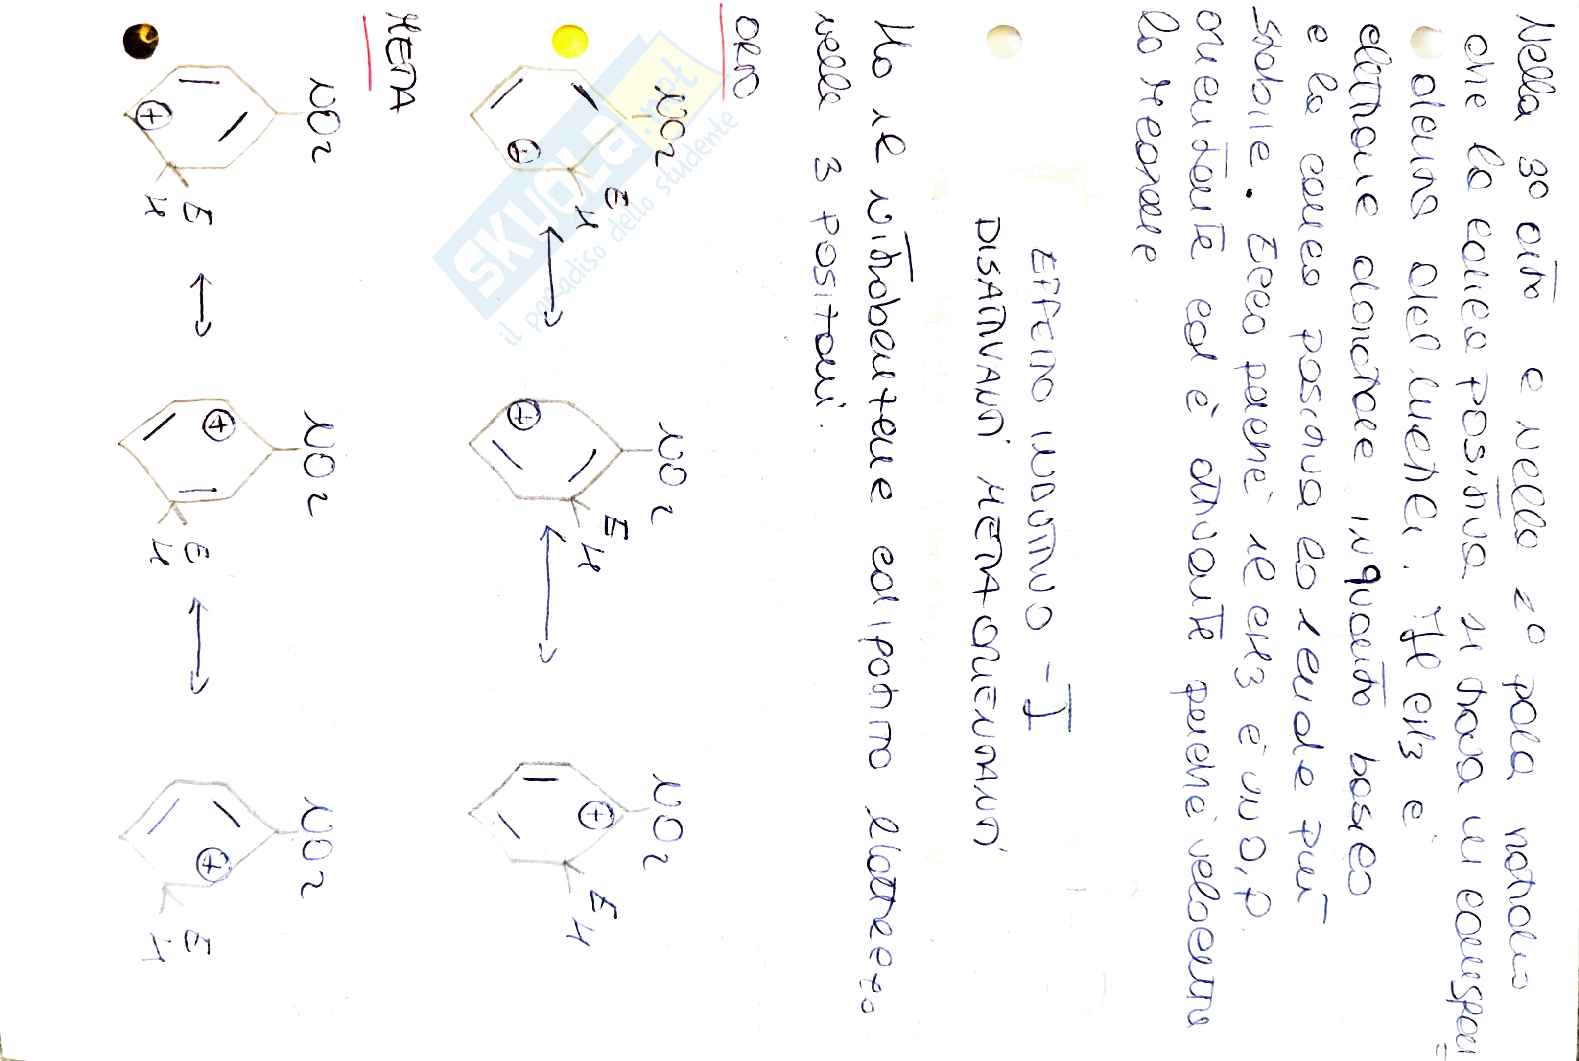 Nella 3° orto e nella 2° para notiamo
che la carica positiva si trova in corrispon=
denza del metile. Il CH3 è
elettrone donatore in quanto basico
e la carica positiva la rende più
stabile. Ecco perché il CH3 è in O,P
orientante ed è attivante perché velocizza
la reazione
EFFETTO INDUTTIVO -I
DISATTIVANTI META ORIENTANTI
Ho il nitrobenzene ed ipotizzo l'attacco
nelle 3 posizioni.
ORTO
NO2 E H ↔ NO2 E H ↔ NO2 E H
META
NO2 E H ↔ NO2 E H ↔ NO2 E H
SKUOLA.net
il paradiso dello studente